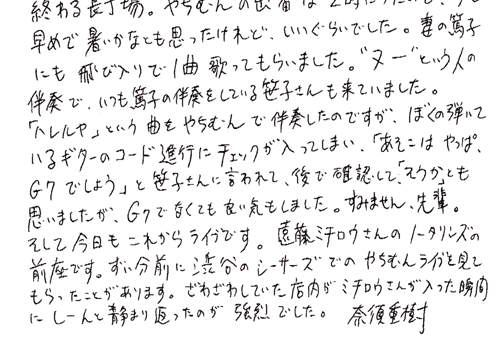 終わる長丁場。やちむんの出番は2時だったので、少し
早めで暑いかなとも思ったけれど、いいぐらいでした。妻の篤子
にも飛び入りで1曲歌ってもらいました。"ヌー"という人の
伴奏で、いつも篤子の伴奏をしている笹子さんも来ていました。
「ハレルヤ」という曲をやちむんで伴奏したのですが、ぼくの弾いて
いるギターのコード進行にチェックが入ってしまい、「あそこはやっぱ、
G7でしょう」と笹子さんに言われて、後で確認して、「そうか」とも
思いましたが、G7でなくても良い気もしました。すみません、先輩。
そして今日もこれからライヴです。遠藤ミチロウさんのノータリンズの
前座です。ずい分前に渋谷のシーサーズでのやちむんライヴを見て
もらったことがあります。ざわざわしていた店内がミチロウさんが入った瞬間
にしーんと静まり返ったのが強烈でした。 奈須重樹